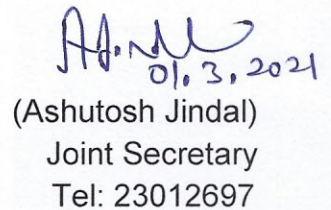 01.3.2021
(Ashutosh Jindal)
Joint Secretary
Tel: 23012697